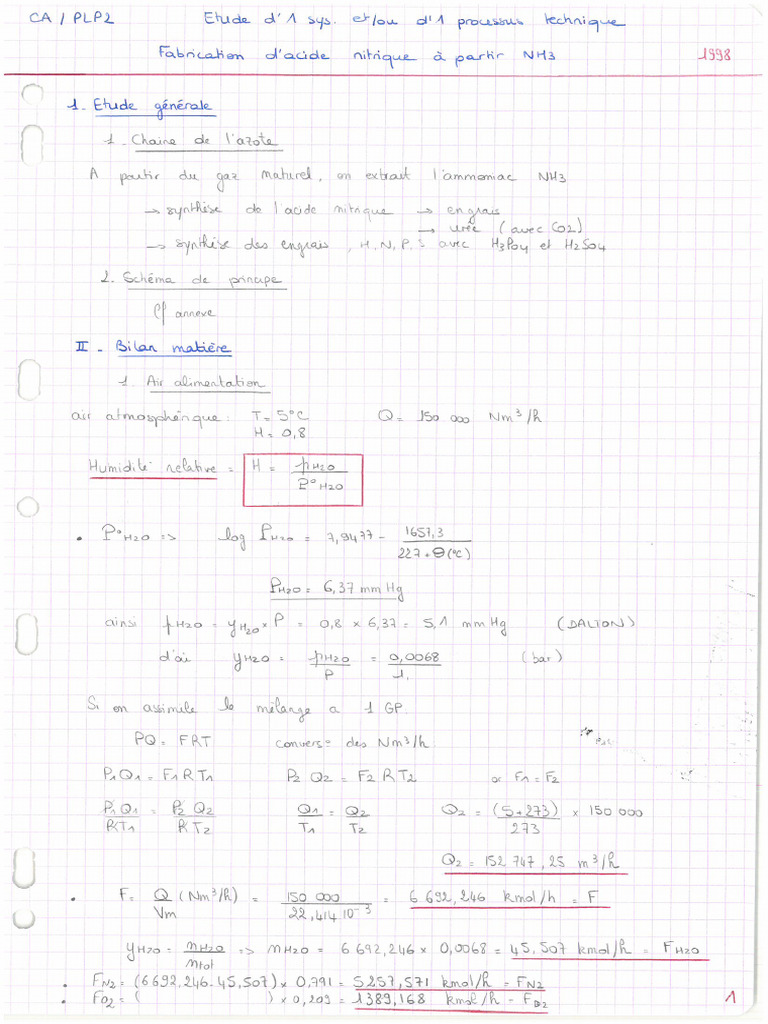 CA / PLP2 Etude d'1 sys. et/ou d'1 processus technique
Fabrication d'acide nitrique à partir NH3 1998
1. Etude générale
1. Chaine de l'azote
A partir du gaz naturel, on extrait l'ammoniac NH3
→ synthèse de l'acide nitrique → engrais
→ urée (avec CO2)
→ synthèse des engrais, H.N.P.S avec H3PO4 et H2SO4
2. Schéma de principe
Cf annexe
II - Bilan matière
1. Air alimentation
air atmosphérique: T = 5°C Q = 150 000 Nm³/h
H = 0,8
Humidité relative = H = pH2O / P°H2O
• P°H2O => log PH2O = 7,9477 - 1657,3 / (227 + θ(°C))
PH2O = 6,37 mm Hg
ainsi pH2O = yH2O × P = 0,8 × 6,37 = 5,1 mm Hg (DALTON)
d'où yH2O = pH2O / P = 0,0068 / 1. (bar)
Si on assimile le mélange a 1 GP.
PQ = FRT convers° des Nm³/h
P1Q1 = F1RT1 P2Q2 = F2RT2 or F1 = F2
P1Q1 / RT1 = P2Q2 / RT2 Q1 / T1 = Q2 / T2 Q2 = (5+273) / 273 × 150 000
Q2 = 152 747,25 m³/h
• F = Q (Nm³/h) / Vm = 150 000 / 22,414 10⁻³ = 6 692,246 kmol/h = F
yH2O = nH2O / ntot => nH2O = 6 692,246 × 0,0068 = 45,507 kmol/h = FH2O
• FN2 = (6692,246-45,507) × 0,791 = 5257,571 kmol/h = FN2
• FO2 = ( ) × 0,209 = 1389,168 kmol/h - FO2 1